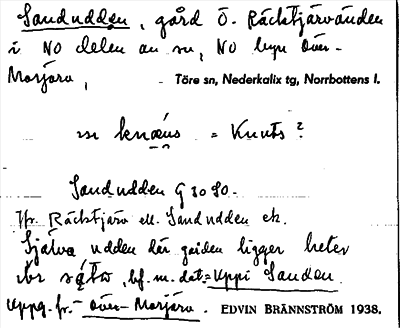 Sandudden, gård Ö. Räcktjärvänden
i NO delen av sn, NO byn Över-
Morjärv,
Töre sn, Nederkalix tg, Norrbottens l.
= Knuts?
Sandudden G 30 SO.
Jfr. Räcktjärv el. Sandudden ek.
Själva udden där gården ligger heter
bf. m. dat. = Uppi Sanden.
Uppg. fr. Över-Morjärv. EDVIN BRÄNNSTRÖM 1938.